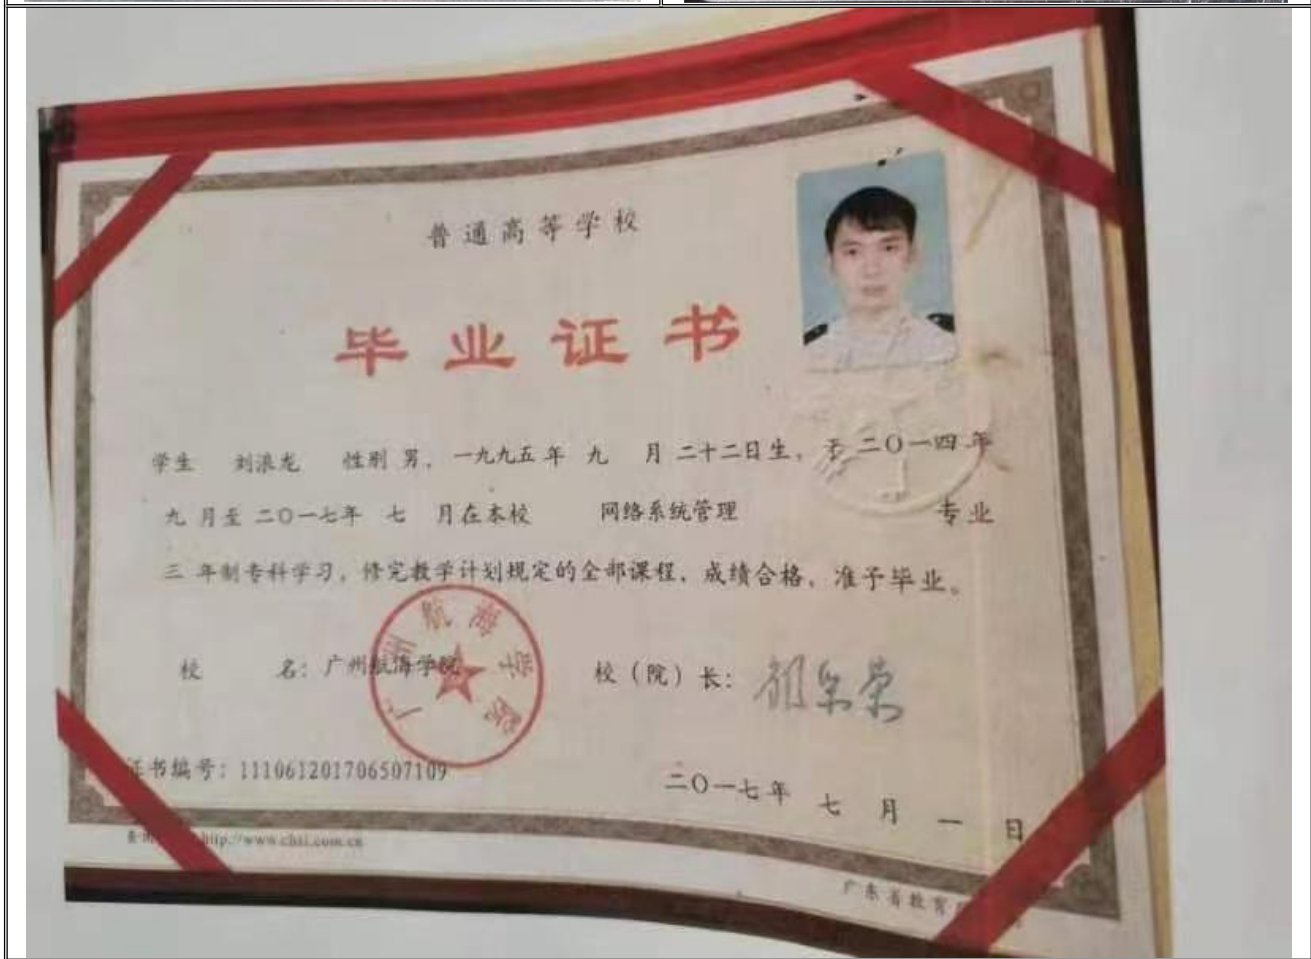 普通高等学校
毕业证书
学生 刘浪龙 性别 男，一九九五年 九 月 二十二日生，于 二〇一四年
九 月至 二〇一七年 七 月在本校 网络系统管理 专业
三 年制专科学习，修完教学计划规定的全部课程，成绩合格，准予毕业。
校 名：广州航海学院 校（院）长：
广州航海学院
证书编号：111061201706507109
二〇一七年 七 月 一 日
http://www.chsi.com.cn
广东省教育